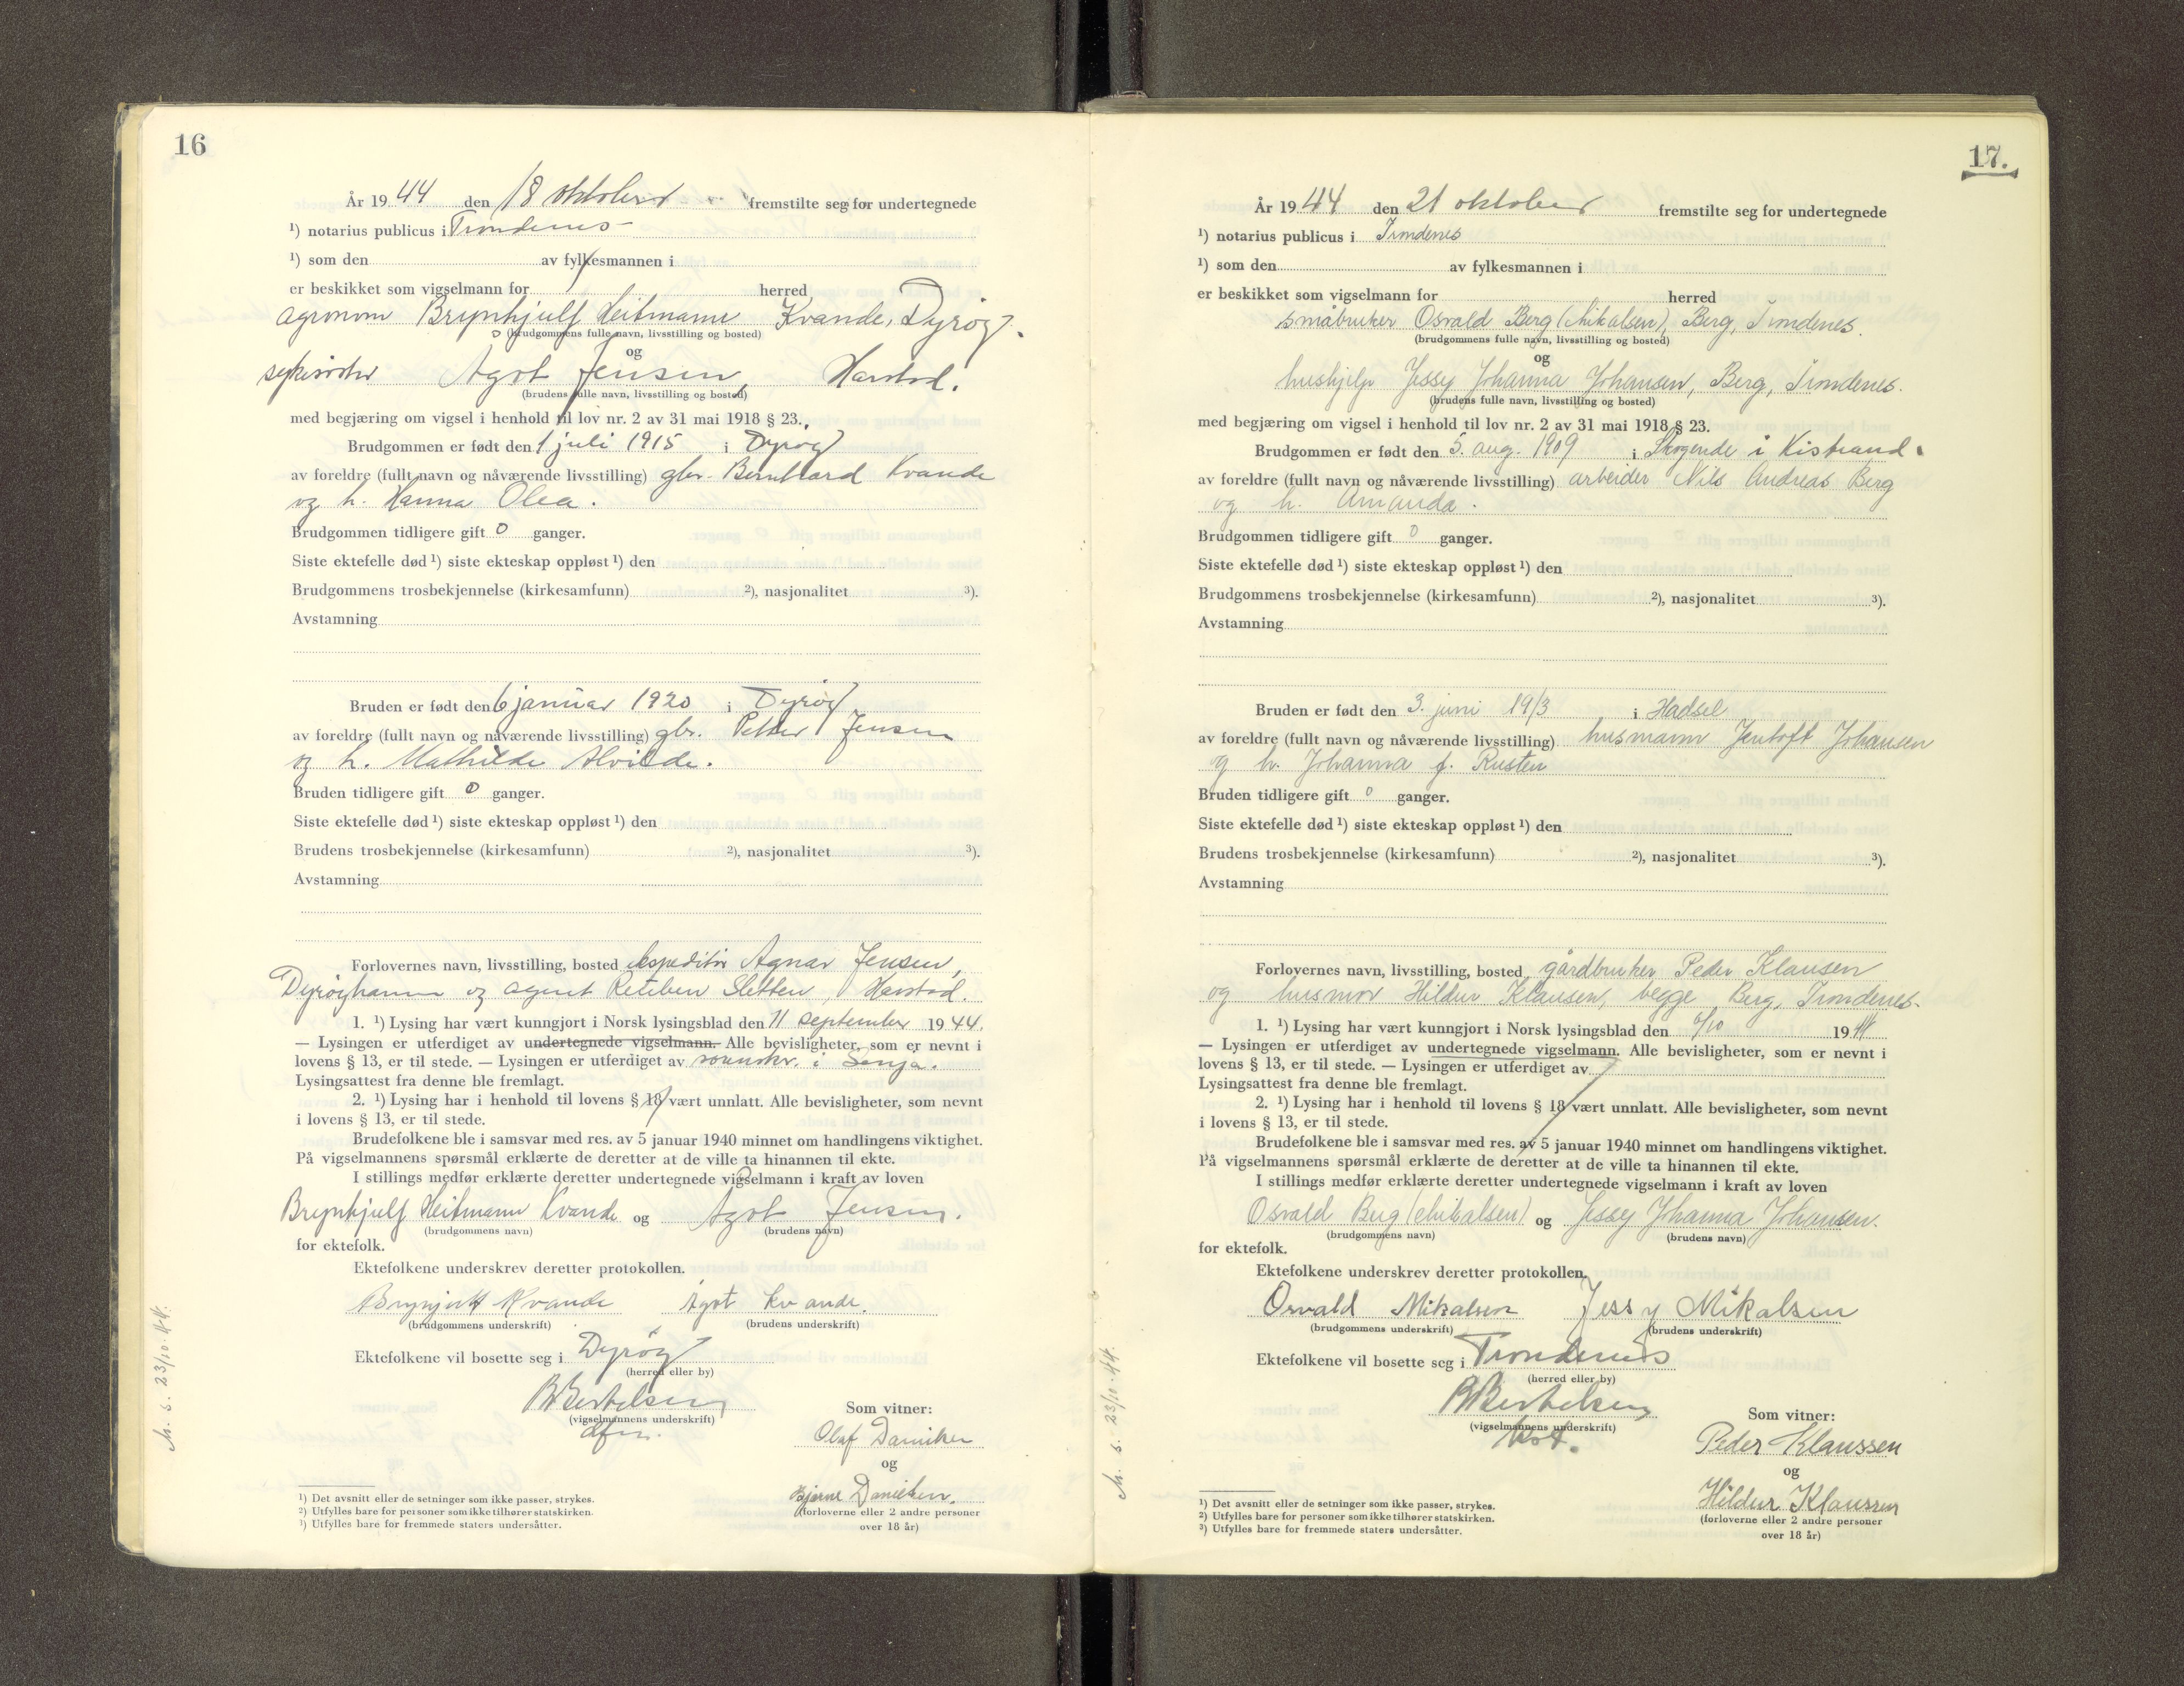 16
År 1944 den 18 oktober fremstilte seg for undertegnede
¹) notarius publicus i Trondenes
¹) som den av fylkesmannen i
er beskikket som vigselmann for herred
agronom Brynhjulf Heitmann Kvande, Dyrøy.
(brudgommens fulle navn, livsstilling og bosted)
og
sykesøster Ågot Jensen, Harstad.
(brudens fulle navn, livsstilling og bosted)
med begjæring om vigsel i henhold til lov nr. 2 av 31 mai 1918 § 23.
Brudgommen er født den 1 juli 1915 i Dyrøy
av foreldre (fullt navn og nåværende livsstilling) gbr. Bernhard Kvande
og h. Hanna Olea.
Brudgommen tidligere gift 0 ganger.
Siste ektefelle død ¹) siste ekteskap oppløst ¹) den
Brudgommens trosbekjennelse (kirkesamfunn) ²), nasjonalitet ³).
Avstamning
Bruden er født den 6 januar 1920 i Dyrøy
av foreldre (fullt navn og nåværende livsstilling) gbr. Petter Jensen
og h. Mathilde Alvilde.
Bruden tidligere gift 0 ganger.
Siste ektefelle død ¹) siste ekteskap oppløst ¹) den
Brudens trosbekjennelse (kirkesamfunn) ²), nasjonalitet ³).
Avstamning
Forlovernes navn, livsstilling, bosted ekspeditør Agnar Jensen,
Dyrøyhamn og agent Sletten, Harstad.
1. ¹) Lysing har vært kunngjort i Norsk lysingsblad den 11 september 1944.
— Lysingen er utferdiget av undertegnede vigselmann. Alle bevisligheter, som er nevnt i
lovens § 13, er til stede. — Lysingen er utferdiget av sorenskr. i Senja.
Lysingsattest fra denne ble fremlagt.
2. ¹) Lysing har i henhold til lovens § 18 vært unnlatt. Alle bevisligheter, som nevnt
i lovens § 13, er til stede.
Brudefolkene ble i samsvar med res. av 5 januar 1940 minnet om handlingens viktighet.
På vigselmannens spørsmål erklærte de deretter at de ville ta hinannen til ekte.
I stillings medfør erklærte deretter undertegnede vigselmann i kraft av loven
Brynhjulf Heitmann Kvande og Ågot Jensen.
(brudgommens navn) (brudens navn)
for ektefolk.
Ektefolkene underskrev deretter protokollen.
Brynjulf Kvande Ågot Kvande.
(brudgommens underskrift) (brudens underskrift)
Ektefolkene vil bosette seg i Dyrøy
(herred eller by)
B Bertelsen
(vigselmannens underskrift)
dfm.
Som vitner:
Olaf Danielsen
og
Bjarne Danielsen.
(forloverne eller 2 andre personer
over 18 år)
M. s. 23/10.44.
¹) Det avsnitt eller de setninger som ikke passer, strykes.
²) Utfylles bare for personer som ikke tilhører statskirken.
³) Utfylles bare for fremmede staters undersåtter.
17.
År 1944 den 21 oktober fremstilte seg for undertegnede
¹) notarius publicus i Trondenes
¹) som den av fylkesmannen i
er beskikket som vigselmann for herred
småbruker Osvald Berg (Mikalsen), Berg, Trondenes.
(brudgommens fulle navn, livsstilling og bosted)
og
hushjelp Jessy Johanna Johansen, Berg, Trondenes.
(brudens fulle navn, livsstilling og bosted)
med begjæring om vigsel i henhold til lov nr. 2 av 31 mai 1918 § 23.
Brudgommen er født den 5. aug. 1909 i i Kistrand.
av foreldre (fullt navn og nåværende livsstilling) arbeider Nils Andreas Berg
og h. Amanda.
Brudgommen tidligere gift 0 ganger.
Siste ektefelle død ¹) siste ekteskap oppløst ¹) den
Brudgommens trosbekjennelse (kirkesamfunn) ²), nasjonalitet ³).
Avstamning
Bruden er født den 3. juni 1913 i Hadsel
av foreldre (fullt navn og nåværende livsstilling) husmann Jentoft Johansen
og h. Johanna f. Rusten
Bruden tidligere gift 0 ganger.
Siste ektefelle død ¹) siste ekteskap oppløst ¹) den
Brudens trosbekjennelse (kirkesamfunn) ²), nasjonalitet ³).
Avstamning
Forlovernes navn, livsstilling, bosted gårdbruker Peder Klausen
og husmor Hildur Klausen, begge Berg, Trondenes.
1. ¹) Lysing har vært kunngjort i Norsk lysingsblad den 6/10 1944
— Lysingen er utferdiget av undertegnede vigselmann. Alle bevisligheter, som er nevnt i
lovens § 13, er til stede. — Lysingen er utferdiget av
Lysingsattest fra denne ble fremlagt.
2. ¹) Lysing har i henhold til lovens § 18 vært unnlatt. Alle bevisligheter, som nevnt
i lovens § 13, er til stede.
Brudefolkene ble i samsvar med res. av 5 januar 1940 minnet om handlingens viktighet.
På vigselmannens spørsmål erklærte de deretter at de ville ta hinannen til ekte.
I stillings medfør erklærte deretter undertegnede vigselmann i kraft av loven
Osvald Berg (Mikalsen) og Jessy Johanna Johansen.
(brudgommens navn) (brudens navn)
for ektefolk.
Ektefolkene underskrev deretter protokollen.
Osvald Mikalsen Jessy Mikalsen
(brudgommens underskrift) (brudens underskrift)
Ektefolkene vil bosette seg i Trondenes
(herred eller by)
B Bertelsen
(vigselmannens underskrift)
Som vitner:
Peder Klaussen
og
Hildur Klaussen
(forloverne eller 2 andre personer
over 18 år)
M. s. 23/10.44.
¹) Det avsnitt eller de setninger som ikke passer, strykes.
²) Utfylles bare for personer som ikke tilhører statskirken.
³) Utfylles bare for fremmede staters undersåtter.